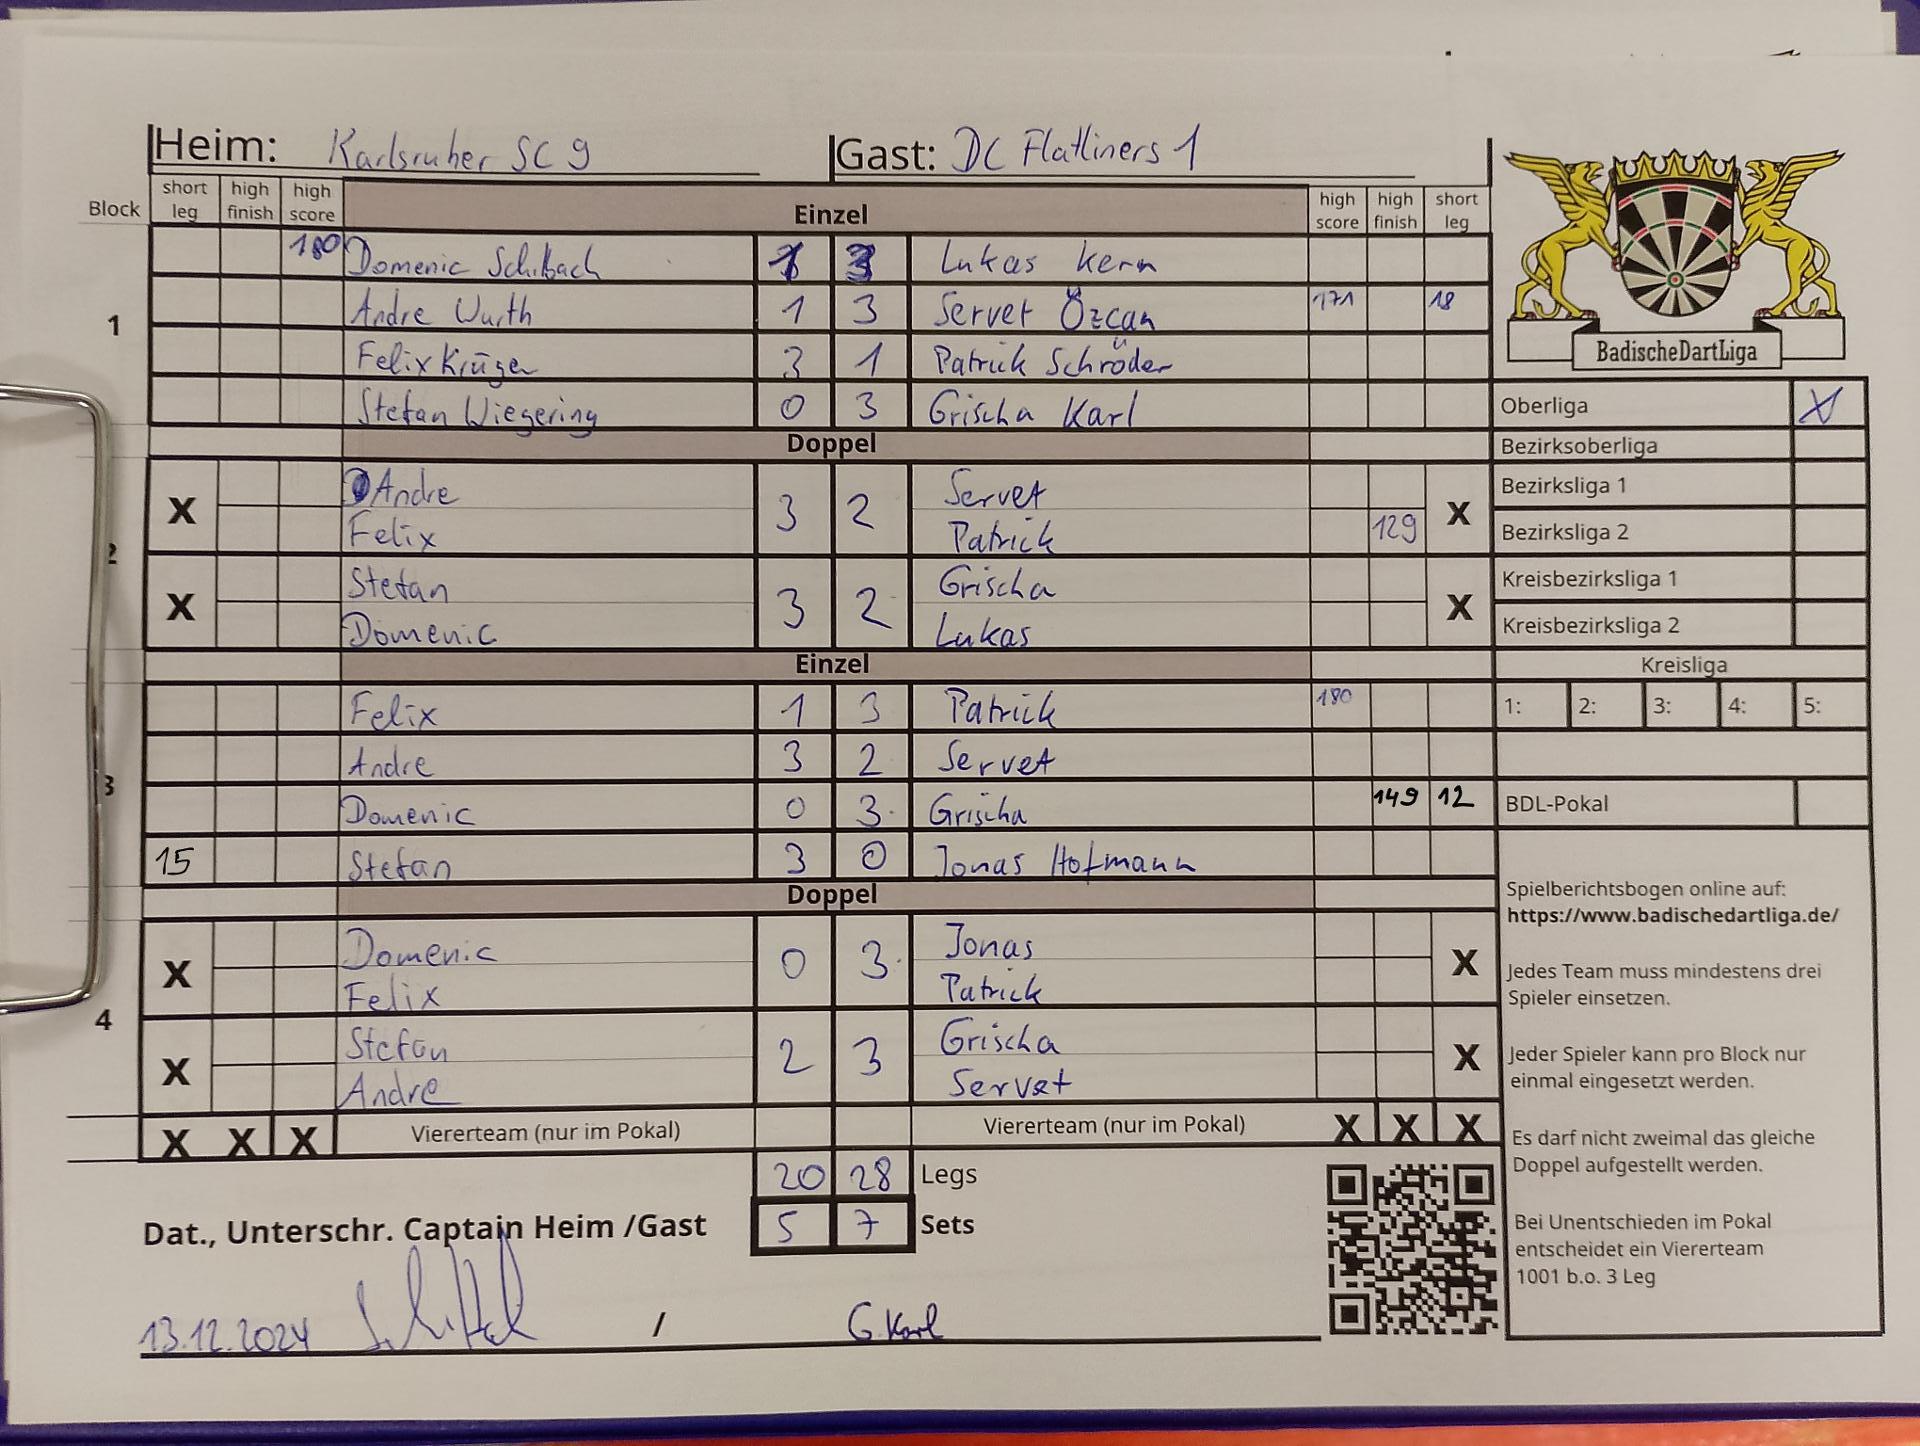 Heim: Karlsruher SC 9 Gast: DC Flatliners 1
Block short leg high finish high score Einzel high score high finish short leg
180 Domenic Schilbach 1 3 Lukas Kern
1 Andre Wurth 1 3 Servet Özcan 171 18
Felix Krüger 3 1 Patrick Schröder
Stefan Wiegering 0 3 Grischa Karl
Doppel
2
X Andre 3 2 Servet X
Felix Patrick 129
X Stefan 3 2 Grischa X
Domenic Lukas
Einzel
3
Felix 1 3 Patrick 180
Andre 3 2 Servet
Domenic 0 3 Grischa 149 12
15 Stefan 3 0 Jonas Hofmann
Doppel
4
X Domenic 0 3 Jonas X
Felix Patrick
X Stefan 2 3 Grischa X
Andre Servet
X X X Viererteam (nur im Pokal) Viererteam (nur im Pokal) X X X
20 28 Legs
Dat., Unterschr. Captain Heim /Gast 5 7 Sets
13.12.2024 / G. Karl
BadischeDartLiga
Oberliga X
Bezirksoberliga
Bezirksliga 1
Bezirksliga 2
Kreisbezirksliga 1
Kreisbezirksliga 2
Kreisliga
1: 2: 3: 4: 5:
BDL-Pokal
Spielberichtsbogen online auf:
https://www.badischedartliga.de/
Jedes Team muss mindestens drei
Spieler einsetzen.
Jeder Spieler kann pro Block nur
einmal eingesetzt werden.
Es darf nicht zweimal das gleiche
Doppel aufgestellt werden.
Bei Unentschieden im Pokal
entscheidet ein Viererteam
1001 b.o. 3 Leg